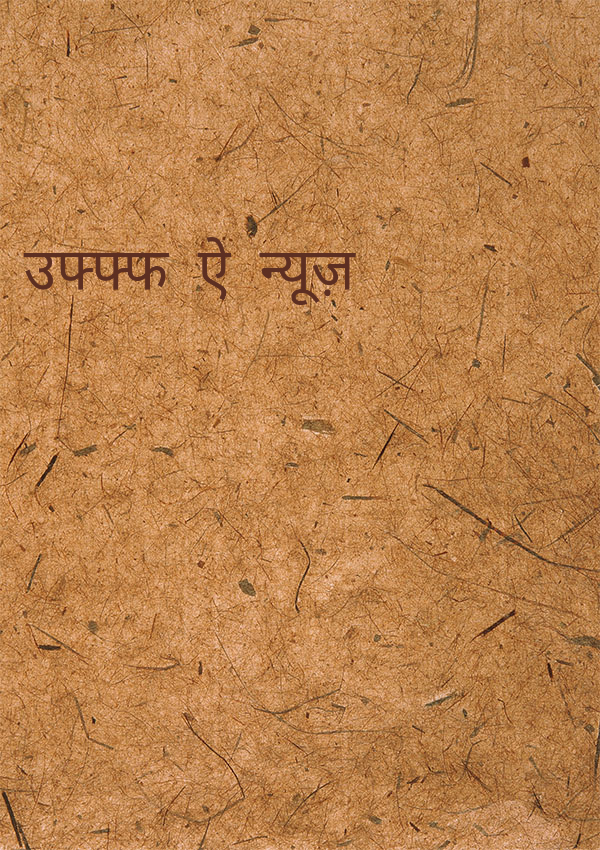 उफ्फ्फ ऐ न्यूज़